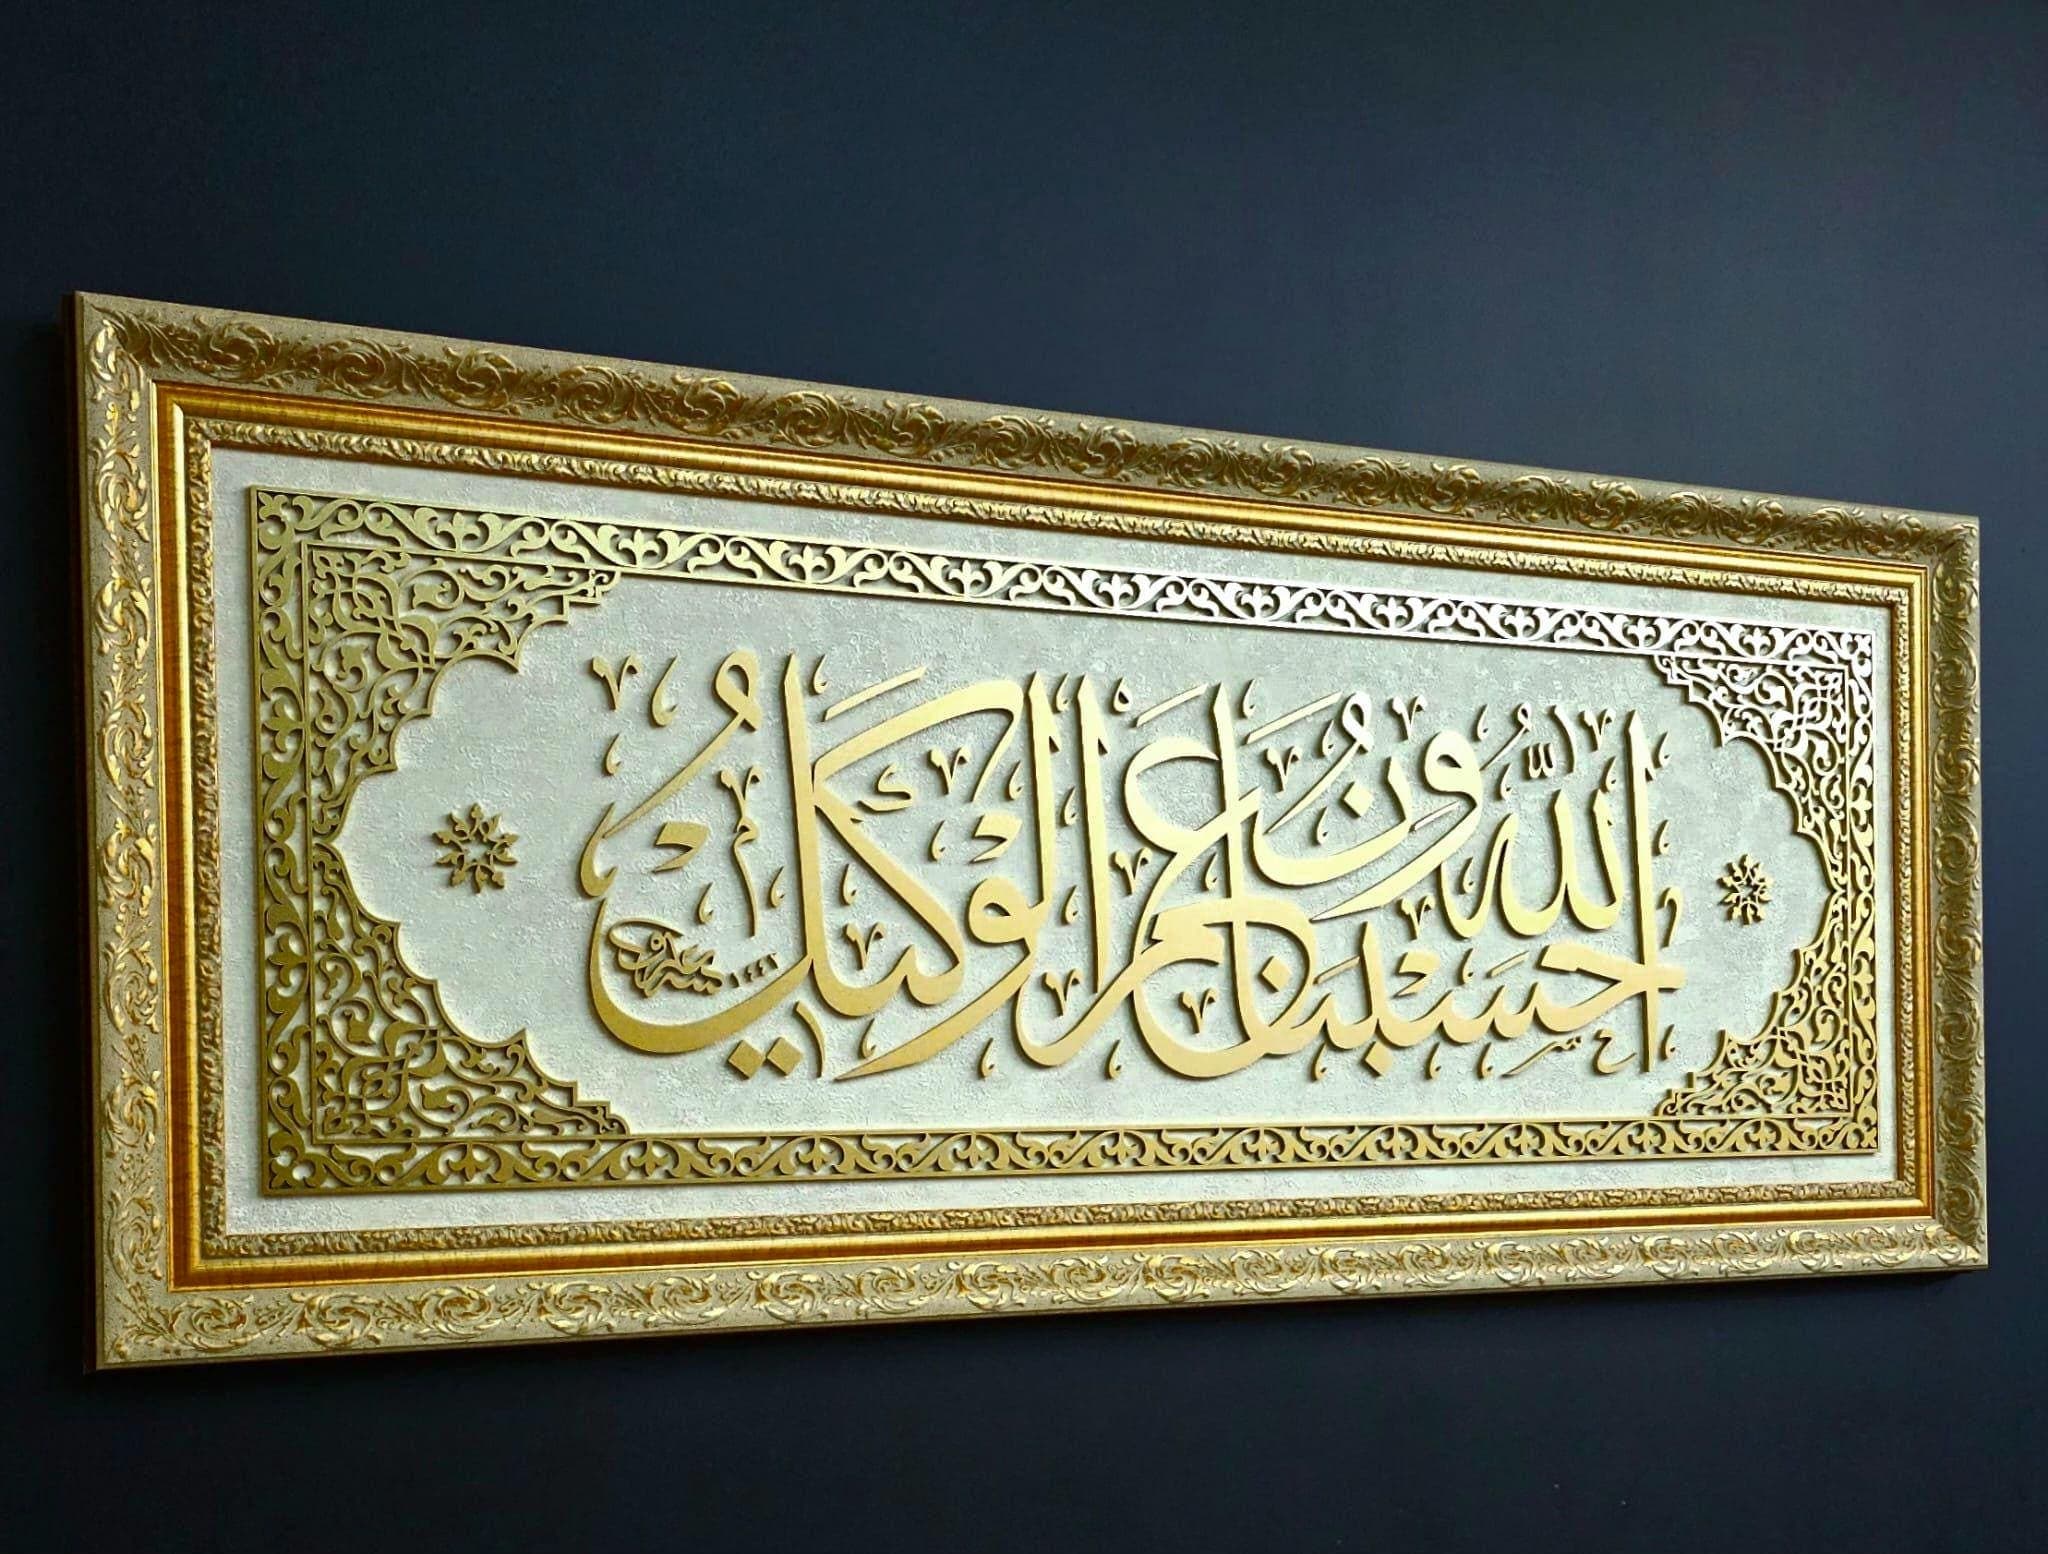 حَسْبُنَا اللهُ وَنِعْمَ الْوَكِيلُ
١٤٤١